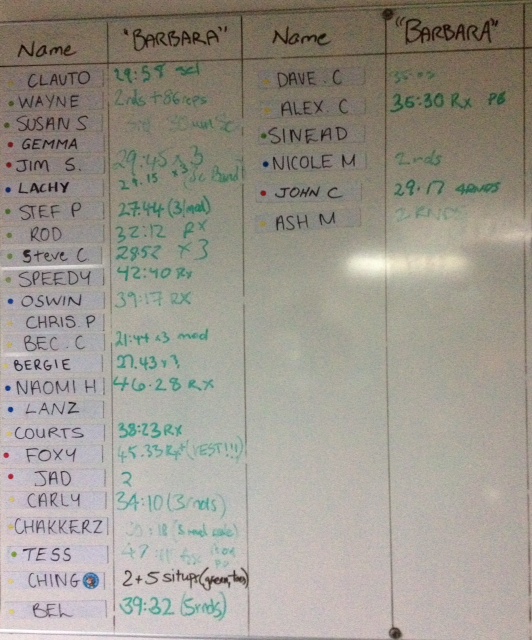 Name "BARBARA"
CLAUTO 29:58 scl
WAYNE 2rds + 86 reps
SUSAN S
GEMMA
JIM S. 29:45 x 3
LACHY
STEF P 27:44 (3/mod)
ROD 32:12 RX
Steve C 28:52 x 3
SPEEDY 42:40 Rx
OSWIN 39:17 RX
CHRIS.P
BEC.C 21:44 x3 mod
BERGIE 27.43 x3
NAOMI H 46.28 Rx
LANZ
COURTS 38:23 Rx
FOXY 45.33 (VEST!!!)
JAD 2
CARLY 34:10 (3/rnds)
CHAKKERZ
TESS 47
CHING 2+5 situps
BEL 39:32 (5rnds)
Name "BARBARA"
DAVE.C
ALEX C 36:30 Rx PB
SINEAD
NICOLE M 2 rds
JOHN C 29.17 4RNDS
ASH M 2 RNDS